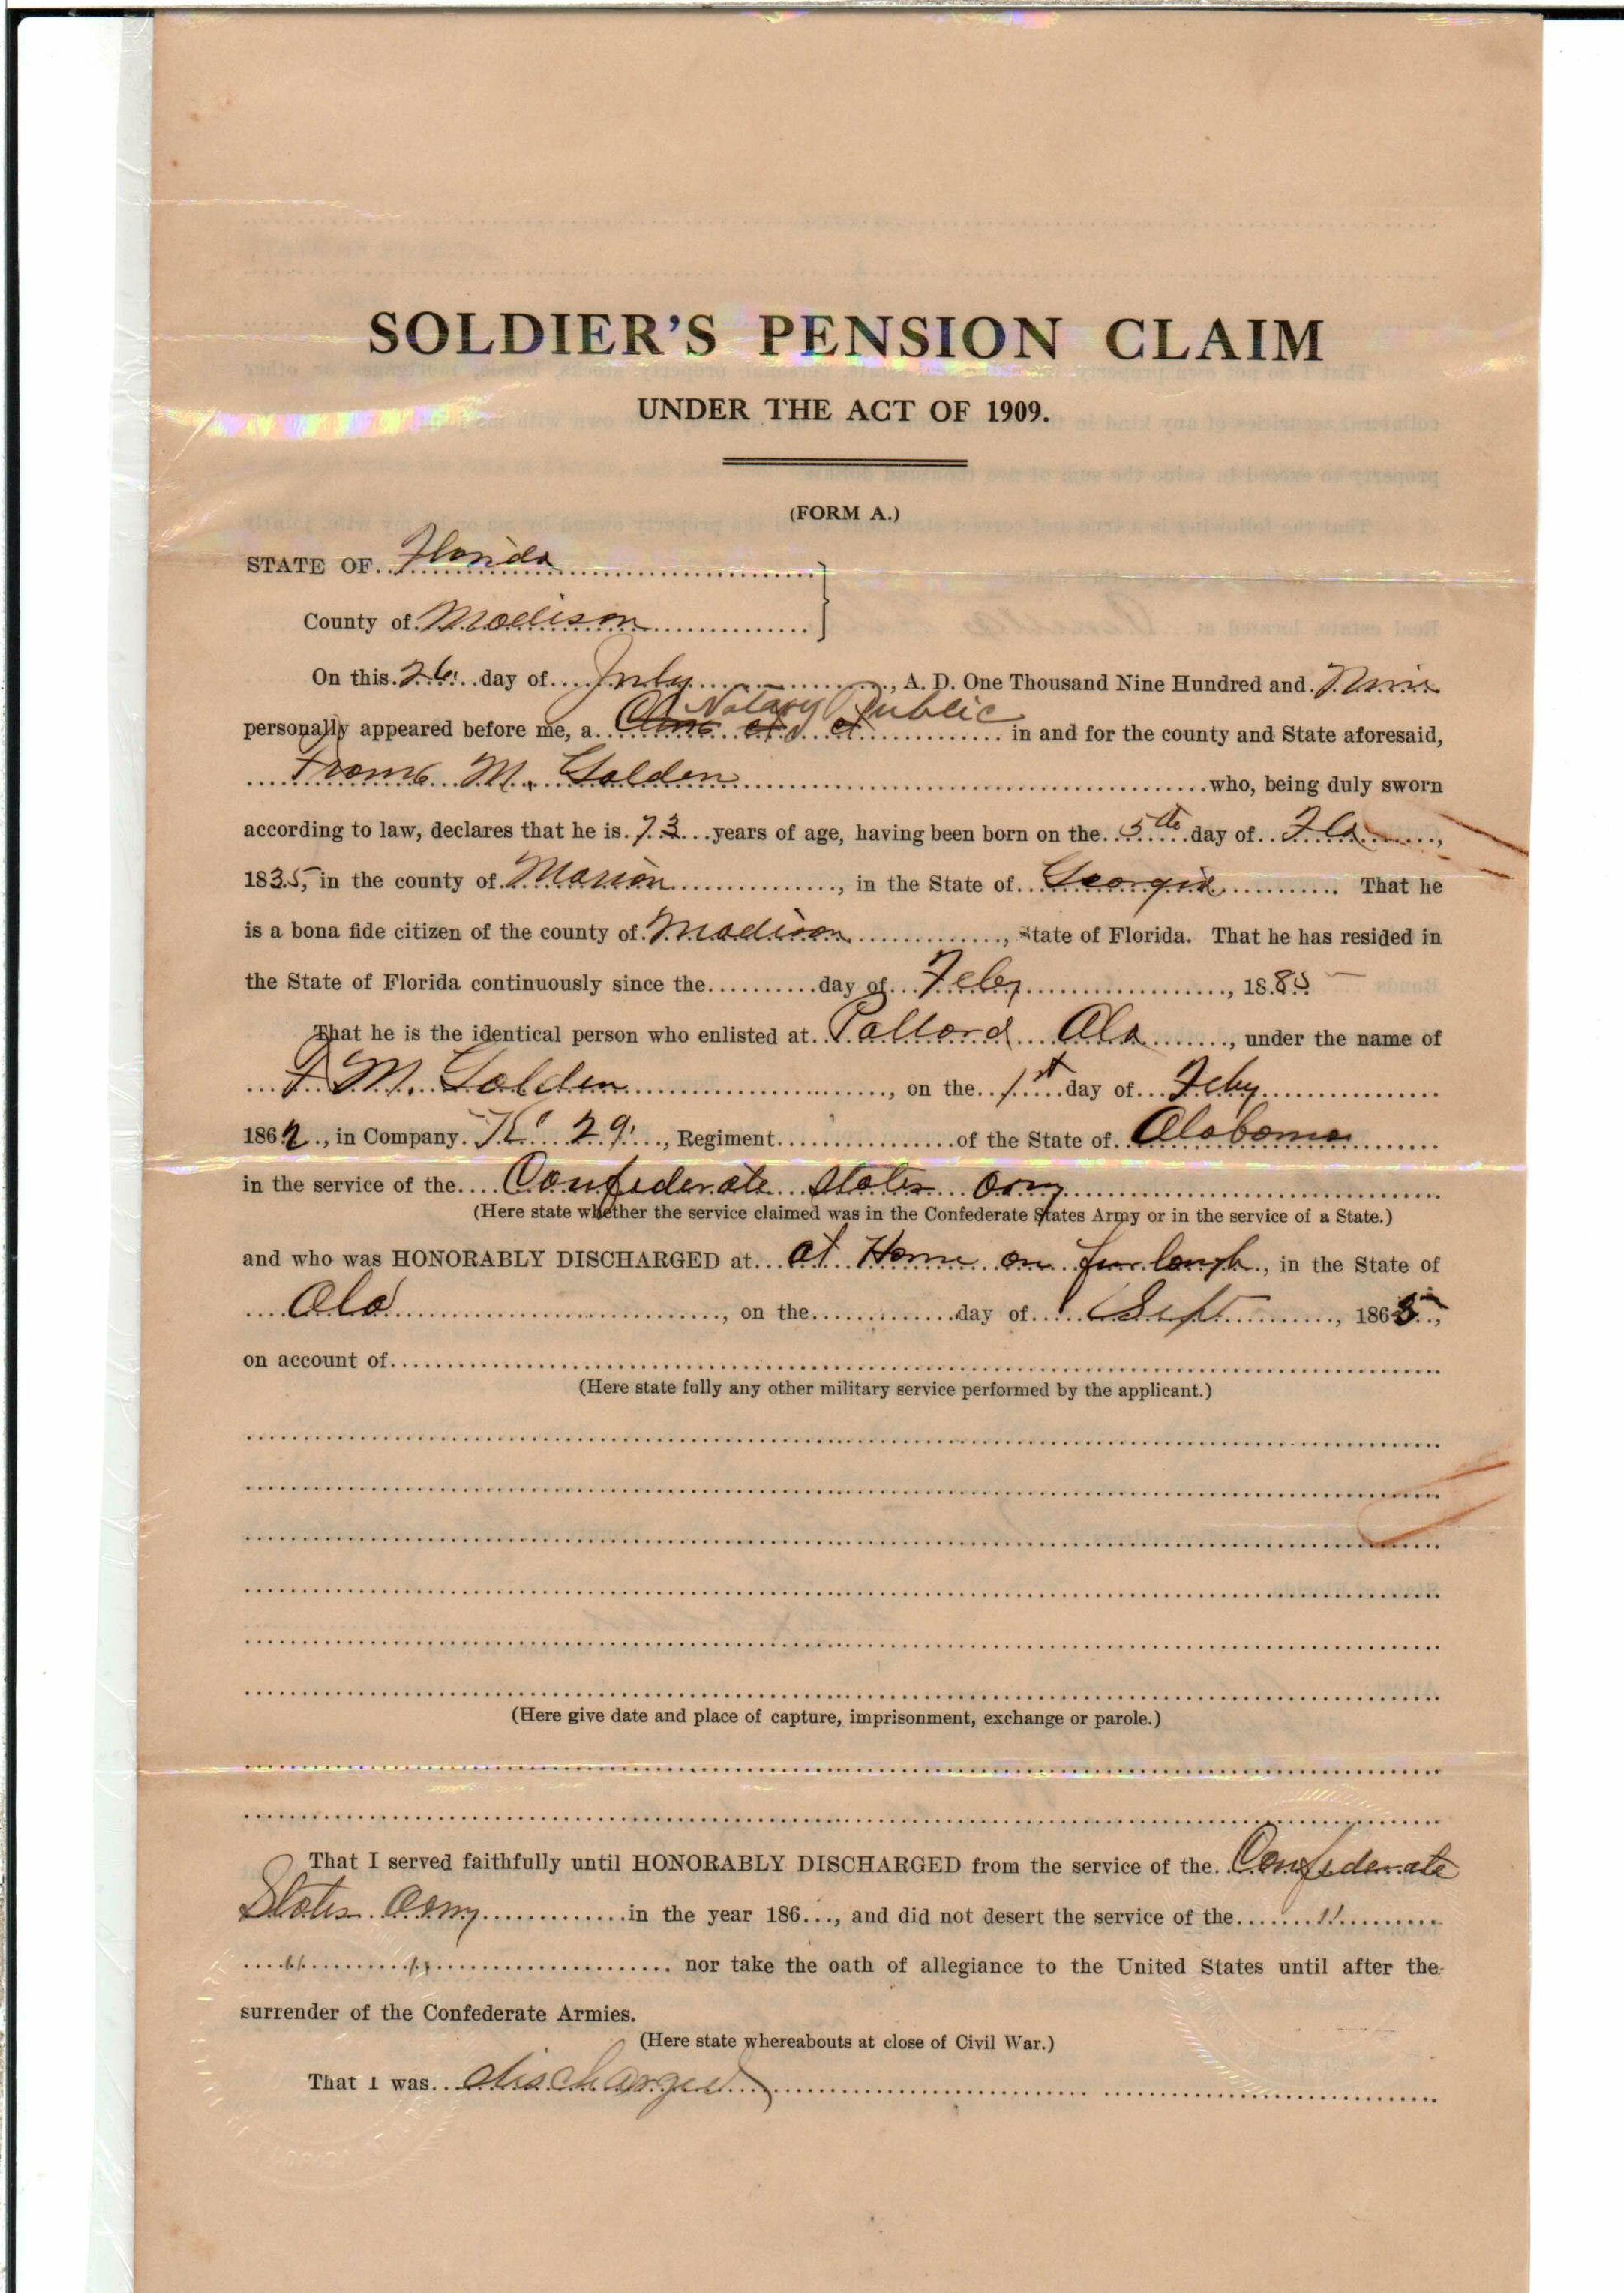 SOLDIER'S PENSION CLAIM
UNDER THE ACT OF 1909.
(FORM A.)
STATE OF Florida
County of Madison
On this 26 day of July, A. D. One Thousand Nine Hundred and Nine
Notary Public
personally appeared before me, a in and for the county and State aforesaid,
M. Golden who, being duly sworn
according to law, declares that he is 73 years of age, having been born on the 5th day of
1835, in the county of Marion, in the State of Georgia. That he
is a bona fide citizen of the county of Madison, State of Florida. That he has resided in
the State of Florida continuously since the day of Feby, 1885
That he is the identical person who enlisted at Pollard Ala, under the name of
F. M. Golden, on the 1st day of Feby
1862, in Company K 29, Regiment of the State of Alabama
in the service of the Confederate States Army
(Here state whether the service claimed was in the Confederate States Army or in the service of a State.)
and who was HONORABLY DISCHARGED at at Home on furlough, in the State of
Ala, on the day of Sept, 1865,
on account of
(Here state fully any other military service performed by the applicant.)
(Here give date and place of capture, imprisonment, exchange or parole.)
That I served faithfully until HONORABLY DISCHARGED from the service of the Confederate
States Army in the year 186, and did not desert the service of the "
" " nor take the oath of allegiance to the United States until after the
surrender of the Confederate Armies.
(Here state whereabouts at close of Civil War.)
That I was discharged